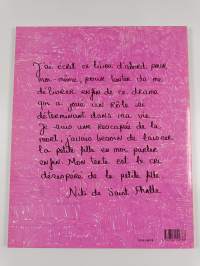 J'ai écrit ce livre d'abord pour
moi-même, pour tenter de me
délivrer enfin de ce drame
qui a joué un rôle si
déterminant dans ma vie.
Je suis une rescapée de la
mort, j'avais besoin de laisser
la petite fille en moi parler
enfin. Mon texte est le cri
désespéré de la petite fille.
Niki de Saint Phalle